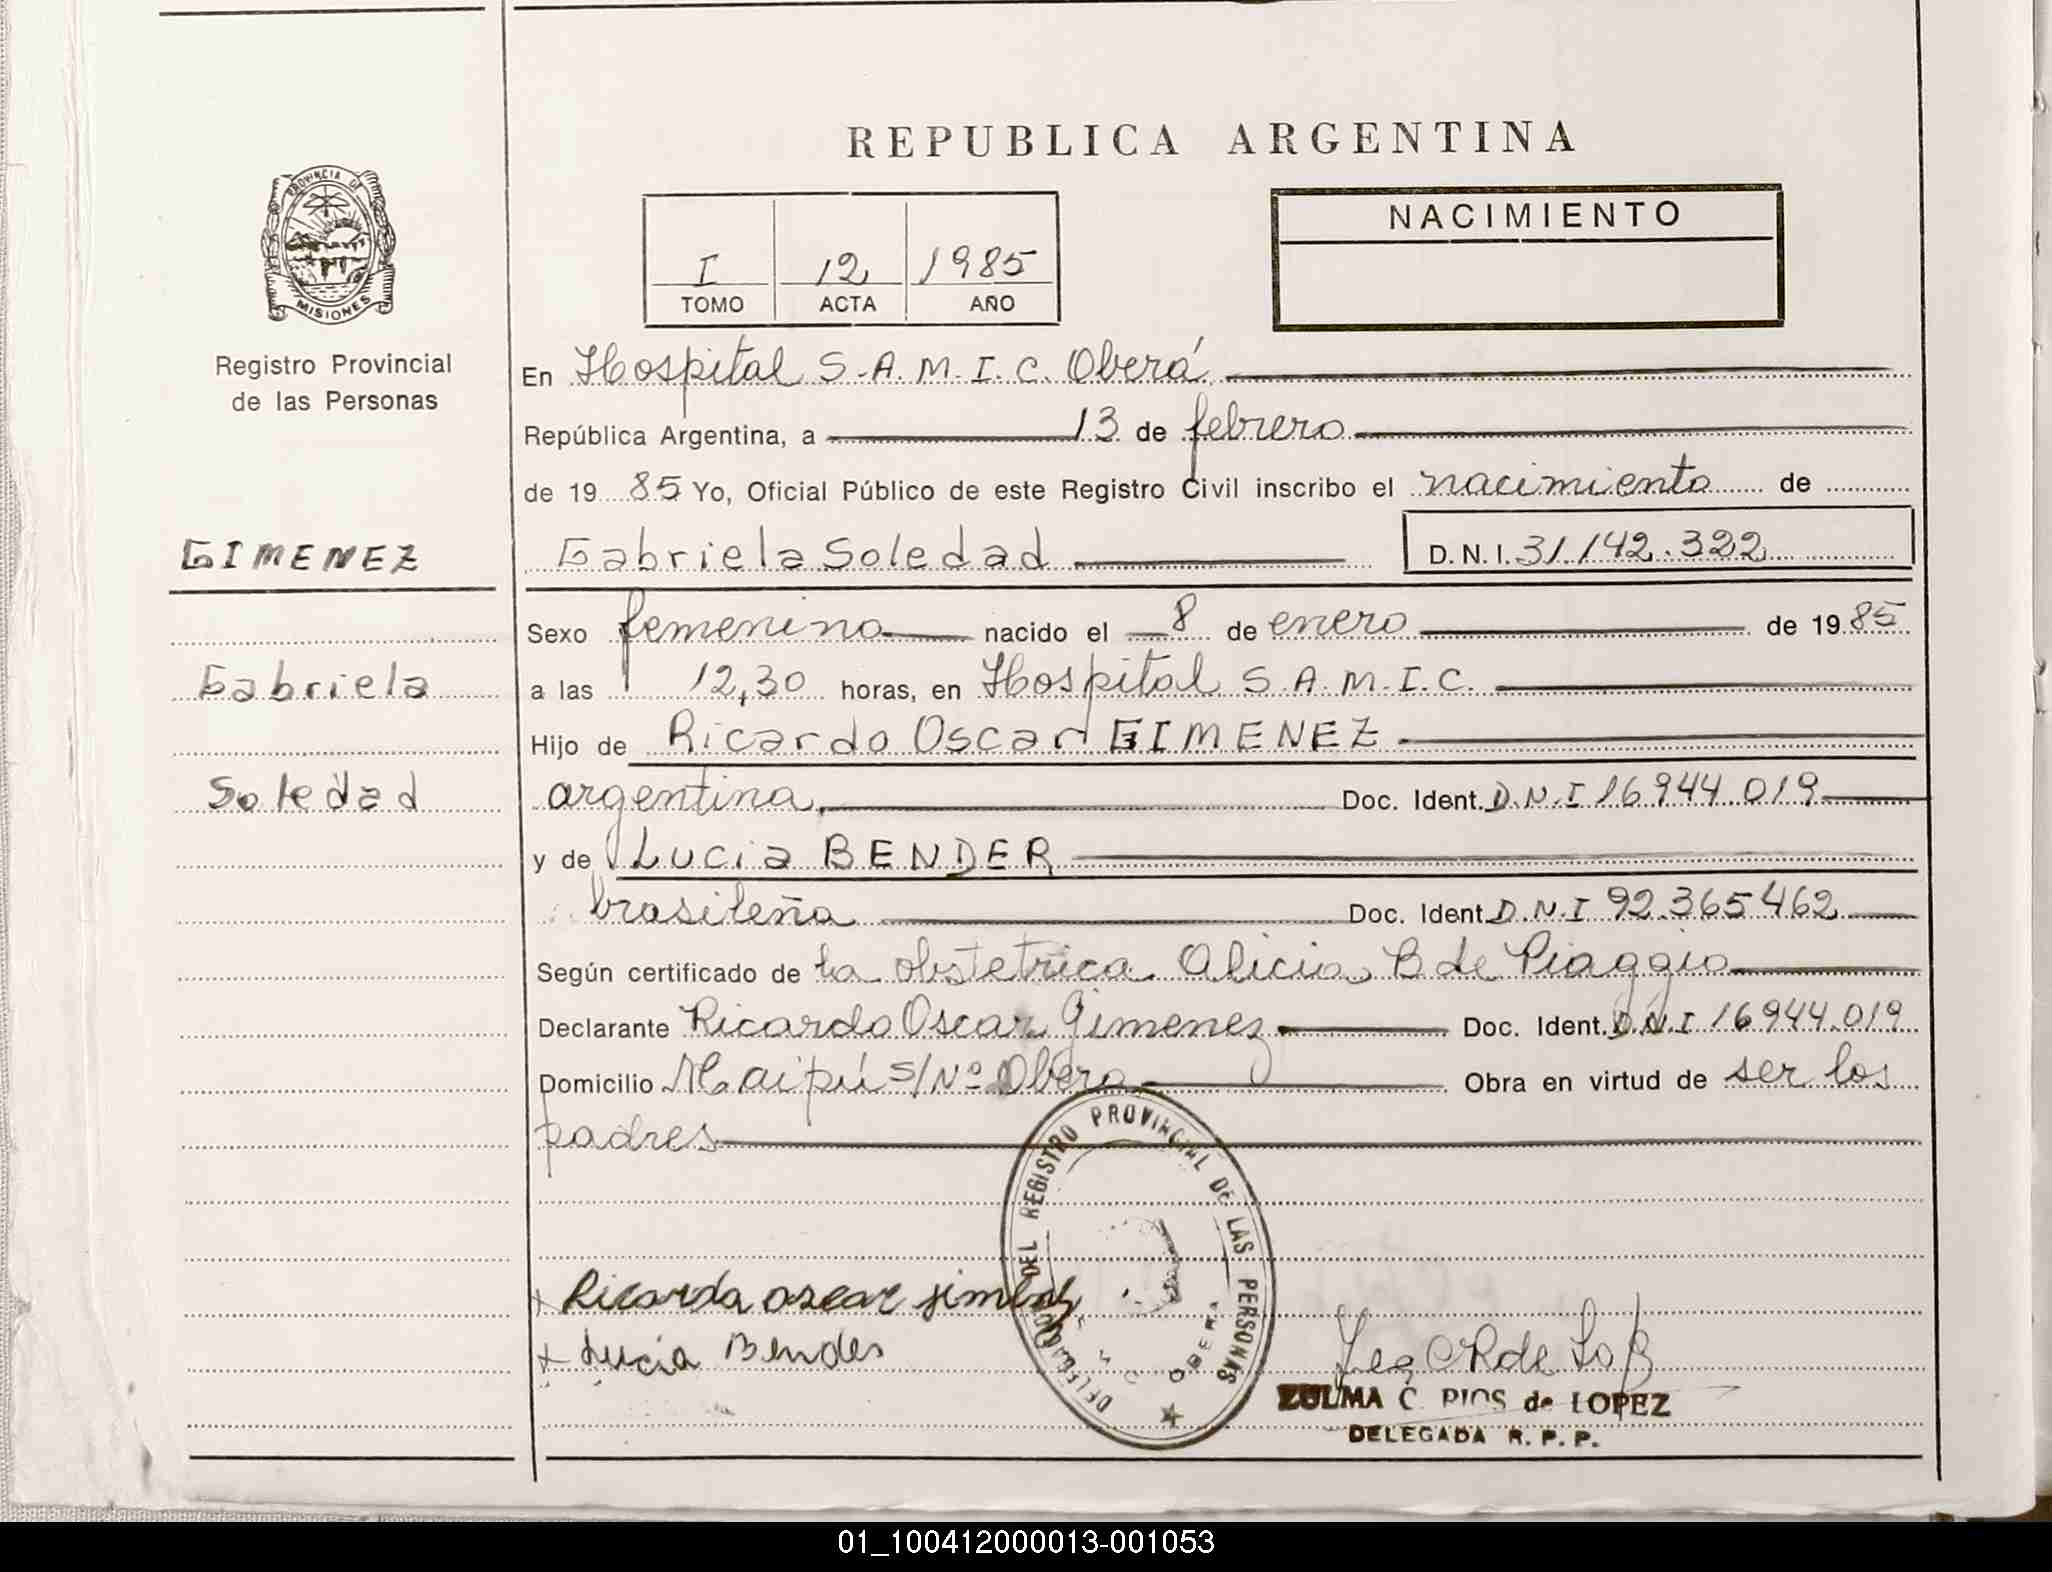 REPUBLICA ARGENTINA
PROVINCIA DE
MISIONES
Registro Provincial
de las Personas
I 12 1985
TOMO ACTA AÑO
NACIMIENTO
En Hospital S.A.M.I.C. Oberá
República Argentina, a 13 de febrero
de 19 85 Yo, Oficial Público de este Registro Civil inscribo el nacimiento de
GIMENEZ
Gabriela Soledad D.N.I. 31.142.322
Sexo femenino nacido el 8 de enero de 19 85
Gabriela
a las 12,30 horas, en Hospital S.A.M.I.C.
Hijo de Ricardo Oscar GIMENEZ
Soledad
argentina, Doc. Ident. D.N.I 16944.019
y de Lucia BENDER
brasileña Doc. Ident. D.N.I 92.365462
Según certificado de la obstetrica Alicia B de Piaggio
Declarante Ricardo Oscar Gimenez Doc. Ident. D.N.I 16944.019
Domicilio Maipú S/Nº Obera Obra en virtud de ser los
padres
DELEGACION DEL REGISTRO PROVINCIAL DE LAS PERSONAS
OBERA
x Ricardo oscar
x Lucia Bender
ZULMA C. RIOS de LOPEZ
DELEGADA R. P. P.
01_100412000013-001053